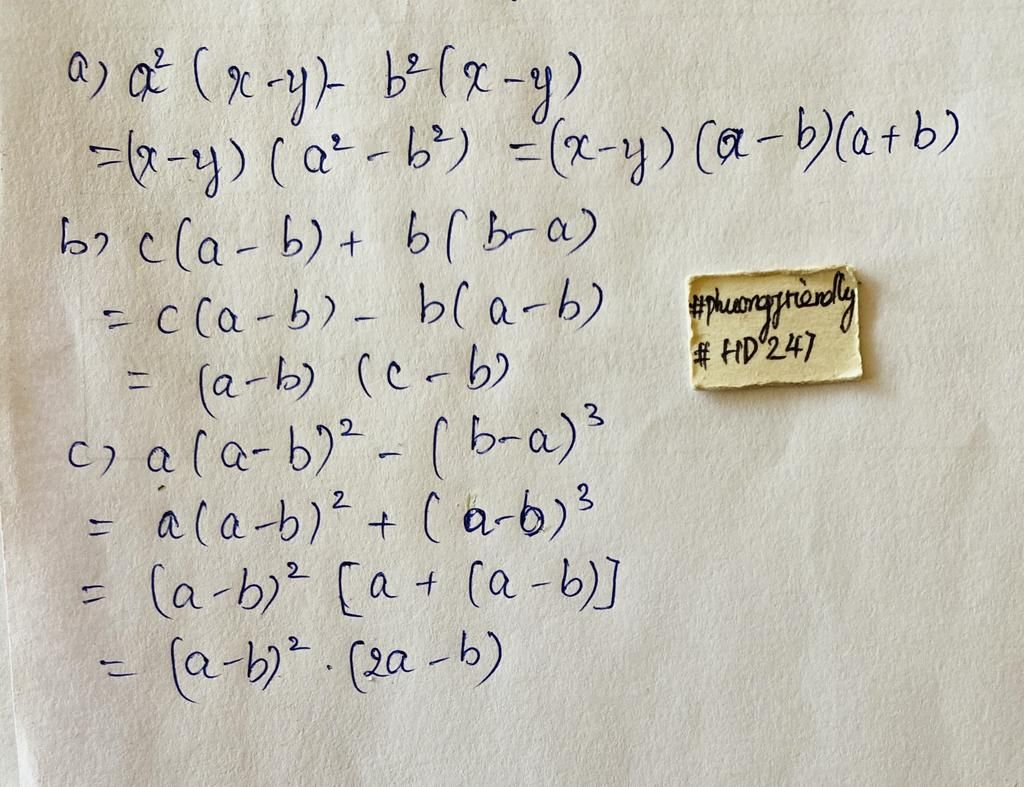 a) a² (x-y) - b² (x-y)
=(x-y) (a² - b²) =(x-y) (a-b)(a+b)
b) c(a-b) + b(b-a)
= c(a-b) - b(a-b)
= (a-b) (c-b)
c) a(a-b)² - (b-a)³
= a(a-b)² + (a-b)³
= (a-b)² [a + (a-b)]
= (a-b)² . (2a-b)
#phuongfriendly
# HD 247